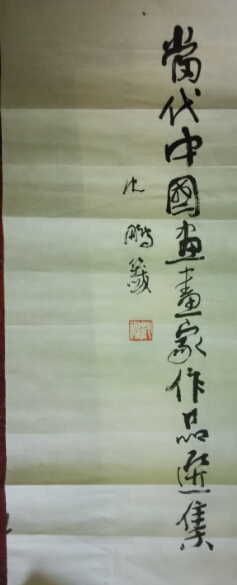 當代中國画畫家作品選集
沈鵬籤